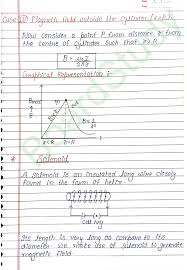 Case III Magnetic field outside the cylinder (r>R):-
Now consider a point P from distance r from
the centre of cylinder such that r>R
B = μ₀I
2πr
Graphical Representation :-
B
r<R
r=R
r>R
* Solenoid
A solenoid is an insulated long wire closely
wound in the form of helix.
Its length is very long as compare to its
diameter. we make use of solenoid to generate
magnetic field